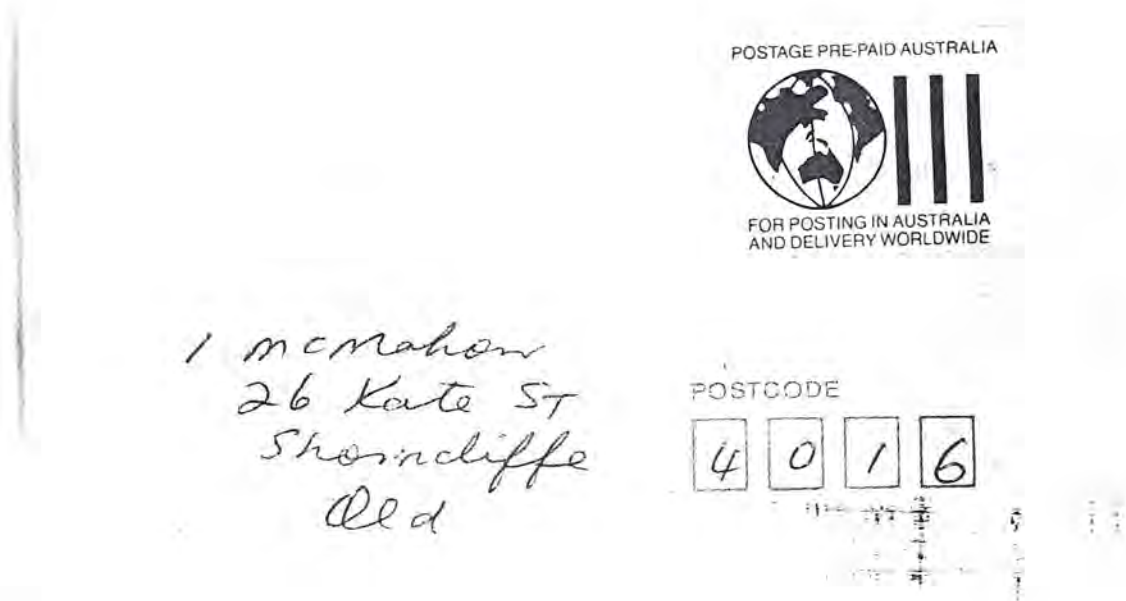 POSTAGE PRE-PAID AUSTRALIA
FOR POSTING IN AUSTRALIA
AND DELIVERY WORLDWIDE
1 McMahon
26 Kate ST
Shorncliffe
Qld
POSTCODE
4 0 1 6